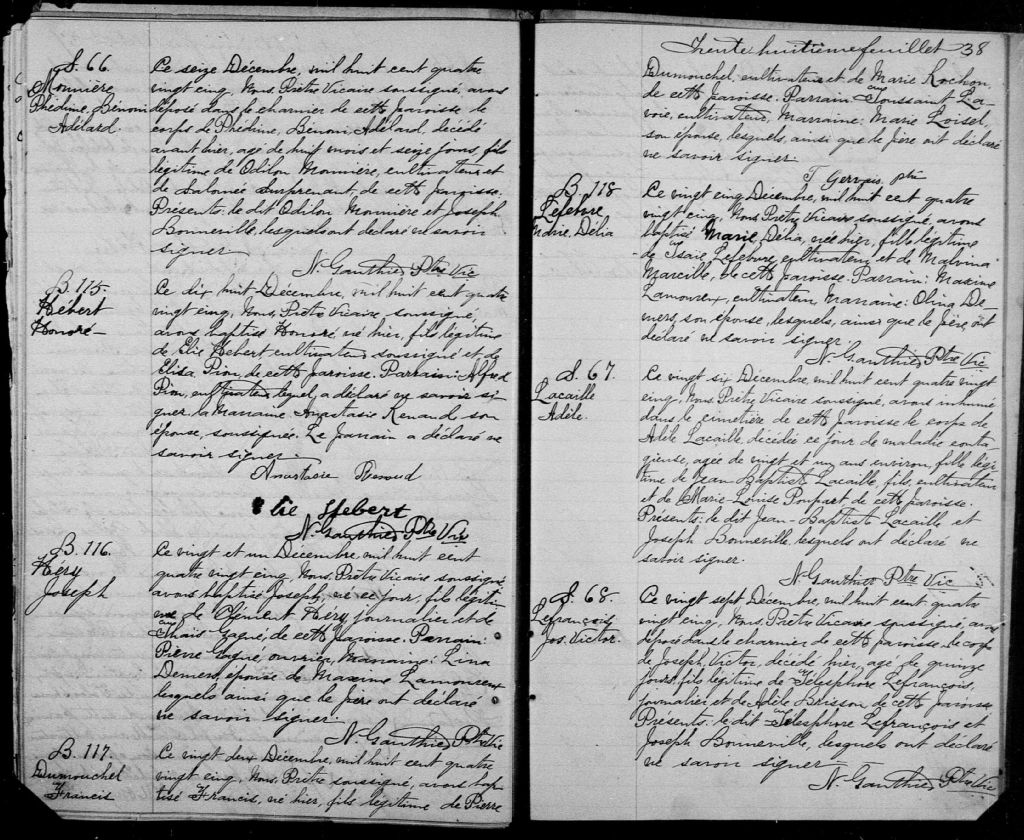 S. 66.
Monnière
Phédime, Bénoni
Adélard.
Ce seize Décembre, mil huit cent quatre
vingt cinq, Nous, Prêtre Vicaire soussigné, avons
déposé dans le charnier de cette paroisse le
corps de Phédime, Bénoni, Adélard, décédé
avant hier, agé de huit mois et seize jours, fils
légitime de Odilon Monnière, cultivateur et
de Salomée Surprenant, de cette paroisse.
Présents: le dit Odilon Monnière et Joseph
Bonneville, lesquels ont déclaré ne savoir
signer.
N. Gauthier Ptre Vic
B. 115-
Hébert
Honoré-
Ce dix huit Décembre, mil huit cent quatre
vingt cinq, Nous, Prêtre Vicaire, soussigné,
avons baptisé Honoré, né hier, fils légitime
de Elie Hebert cultivateur soussigné et de
Elisa Pion, de cette paroisse. Parrain: Alfred
Pion, cultivateur, lequel a déclaré ne savoir si-
gner. La Marraine Anastasie Renaud, son
épouse, soussignée. Le parrain a déclaré ne
savoir signer.
Anastasie Renaud
Elie Hebert
N. Gauthier Ptre Vic
B. 116.
Héry
Joseph
Ce vingt et un Décembre, mil huit cent
quatre vingt cinq, Nous, Prêtre Vicaire soussigné
avons baptisé Joseph, né ce jour, fils légitim
de Clément Héry, journalier et de
Thaïs Gagné, de cette paroisse. Parrain:
Pierre Gagné, ouvrier, Marraine: Lina
Demers, épouse de Maxime Lamoureux
lesquels ainsi que le père ont déclaré
ne savoir signer.
N. Gauthier Ptre Vic
B. 117.
Dumouchel
Francis
Ce vingt deux Décembre, mil huit cent quatre
vingt cinq, Nous, Prêtre, soussigné, avons bap-
tisé Francis, né hier, fils légitime de Pierre
Trente huitième feuillet 38
Dumouchel, cultivateur et de Marie Rochon
de cette paroisse. Parrain: Toussaint La-
voie, cultivateur, Marraine: Marie Loisel,
son épouse, lesquels, ainsi que le père ont déclaré
ne savoir signer.
T. Gervais ptr
B. 118
Lefebvre
Marie, Délia
Ce vingt cinq Décembre, mil huit cent quatre
vingt cinq, Nous, Prêtre Vicaire soussigné, avons
baptisé Marie, Délia, née hier, fille légitime
de Isaïe Lefebvre, cultivateur, et de Malvina
Marcille, de cette paroisse. Parrain: Maxime
Lamoureux, cultivateur, Marraine: Olina De-
mers, son épouse, lesquels, ainsi que le père, ont
déclaré ne savoir signer.
N. Gauthier Ptre Vic
S. 67.
Lacaille
Adèle.
Ce vingt six Décembre, mil huit cent quatre vingt
cinq, Nous, Prêtre Vicaire soussigné, avons inhumé
dans le cimetière de cette paroisse le corps de
Adèle Lacaille, décédée ce jour de maladie conta-
gieuse, agée de vingt et un ans environ, fille légi-
time de Jean Baptiste Lacaille, fils, cultivateur
et de Marie-Louise Poupart de cette paroisse.
Présents: le dit Jean-Baptiste Lacaille et
Joseph Bonneville, lesquels ont déclaré ne
savoir signer.
N. Gauthier Ptre Vic
S. 68-
Lefrançois
Jos. Victor.
Ce vingt sept Décembre, mil huit cent quatre
vingt cinq, Nous, Prêtre Vicaire soussigné, avons
déposé dans le charnier de cette paroisse le corps
de Joseph, Victor, décédé hier, agé de quinze
jours, fils légitime de Télesphore Lefrançois,
journalier et de Adèle Brisson de cette paroisse
Présents: le dit Télesphore Lefrançois et
Joseph Bonneville, lesquels ont déclaré
ne savoir signer
N. Gauthier Ptre Vic